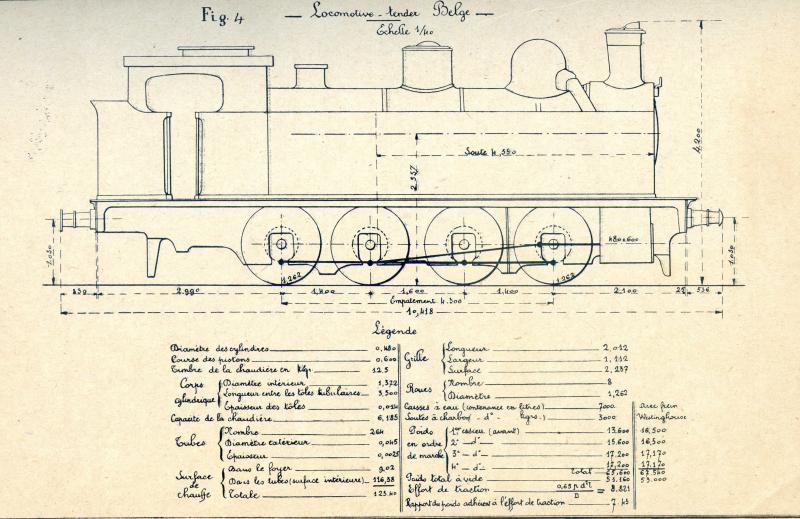 Fig. 4 — Locomotive-tender Belge —
Echelle 1/40
Soute 4,550
2,357
4,200
480x600
1,030
1,030
1.262
1.262
430
2.990
1.400
1.600
1.400
2.100
536
Empatement 4.300
10,418
Légende
Diamètre des cylindres 0,480
Course des pistons 0,600
Timbre de la chaudière en Kg. 12.5
Corps cylindrique
Diamètre intérieur 1,372
Longueur entre les tôles tubulaires 3,500
Epaisseur des tôles 0,014
Capacité de la chaudière 6,185
Tubes
Nombre 264
Diamètre extérieur 0,045
Epaisseur 0,0025
Surface de chauffe
Dans le foyer 9,02
Dans les tubes (surface intérieure) 116,38
Totale 125.40
Grille
Longueur 2,012
Largeur 1,112
Surface 2,237
Roues
Nombre 8
Diamètre 1,262
Caisses à eau (contenance en litres) 7000
Soutes à charbon - d° - kgrs.) 3000
avec frein Westinghouse
Poids en ordre de marche
1er essieu (avant) 13.600 16,500
2e - d° 15.600 16,500
3e - d° 17,200 17,170
4e - d° 17,200 17.170
Total
Poids total à vide 51.160 53.000
Effort de traction 0,65 p d² l / D = 8.821
Rapport du poids adhérent à l'effort de traction 7.43